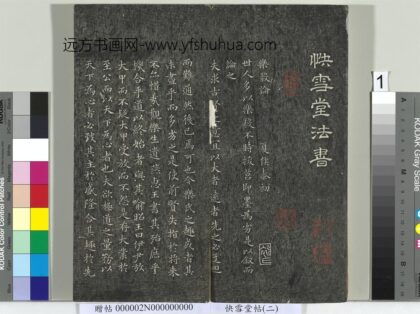 远方书画网-www.yfshuhua.com
快雪堂法書
樂毅論
夏侯泰初
世人多以樂毅不時拔莒即墨為劣是以叙而
論之
夫求古賢之意宜以大者遠者先之必迂迴
而難通然後已焉可也今樂氏之趣或者其
未盡乎而多劣之是使前賢失指於將来
不亦惜哉觀樂生遺燕惠王書其殆庶乎
機合乎道以終始者與其喻昭王曰伊尹放
大甲而不疑大甲受放而不怨是存大業於
至公而以天下為心者也夫欲極道之量務以
天下為心者必致其主於盛隆合其趣於先
1
KODAK Color Control Patches
KODAK Gray Scale
贈帖 000002N000000000 快雪堂帖(二)